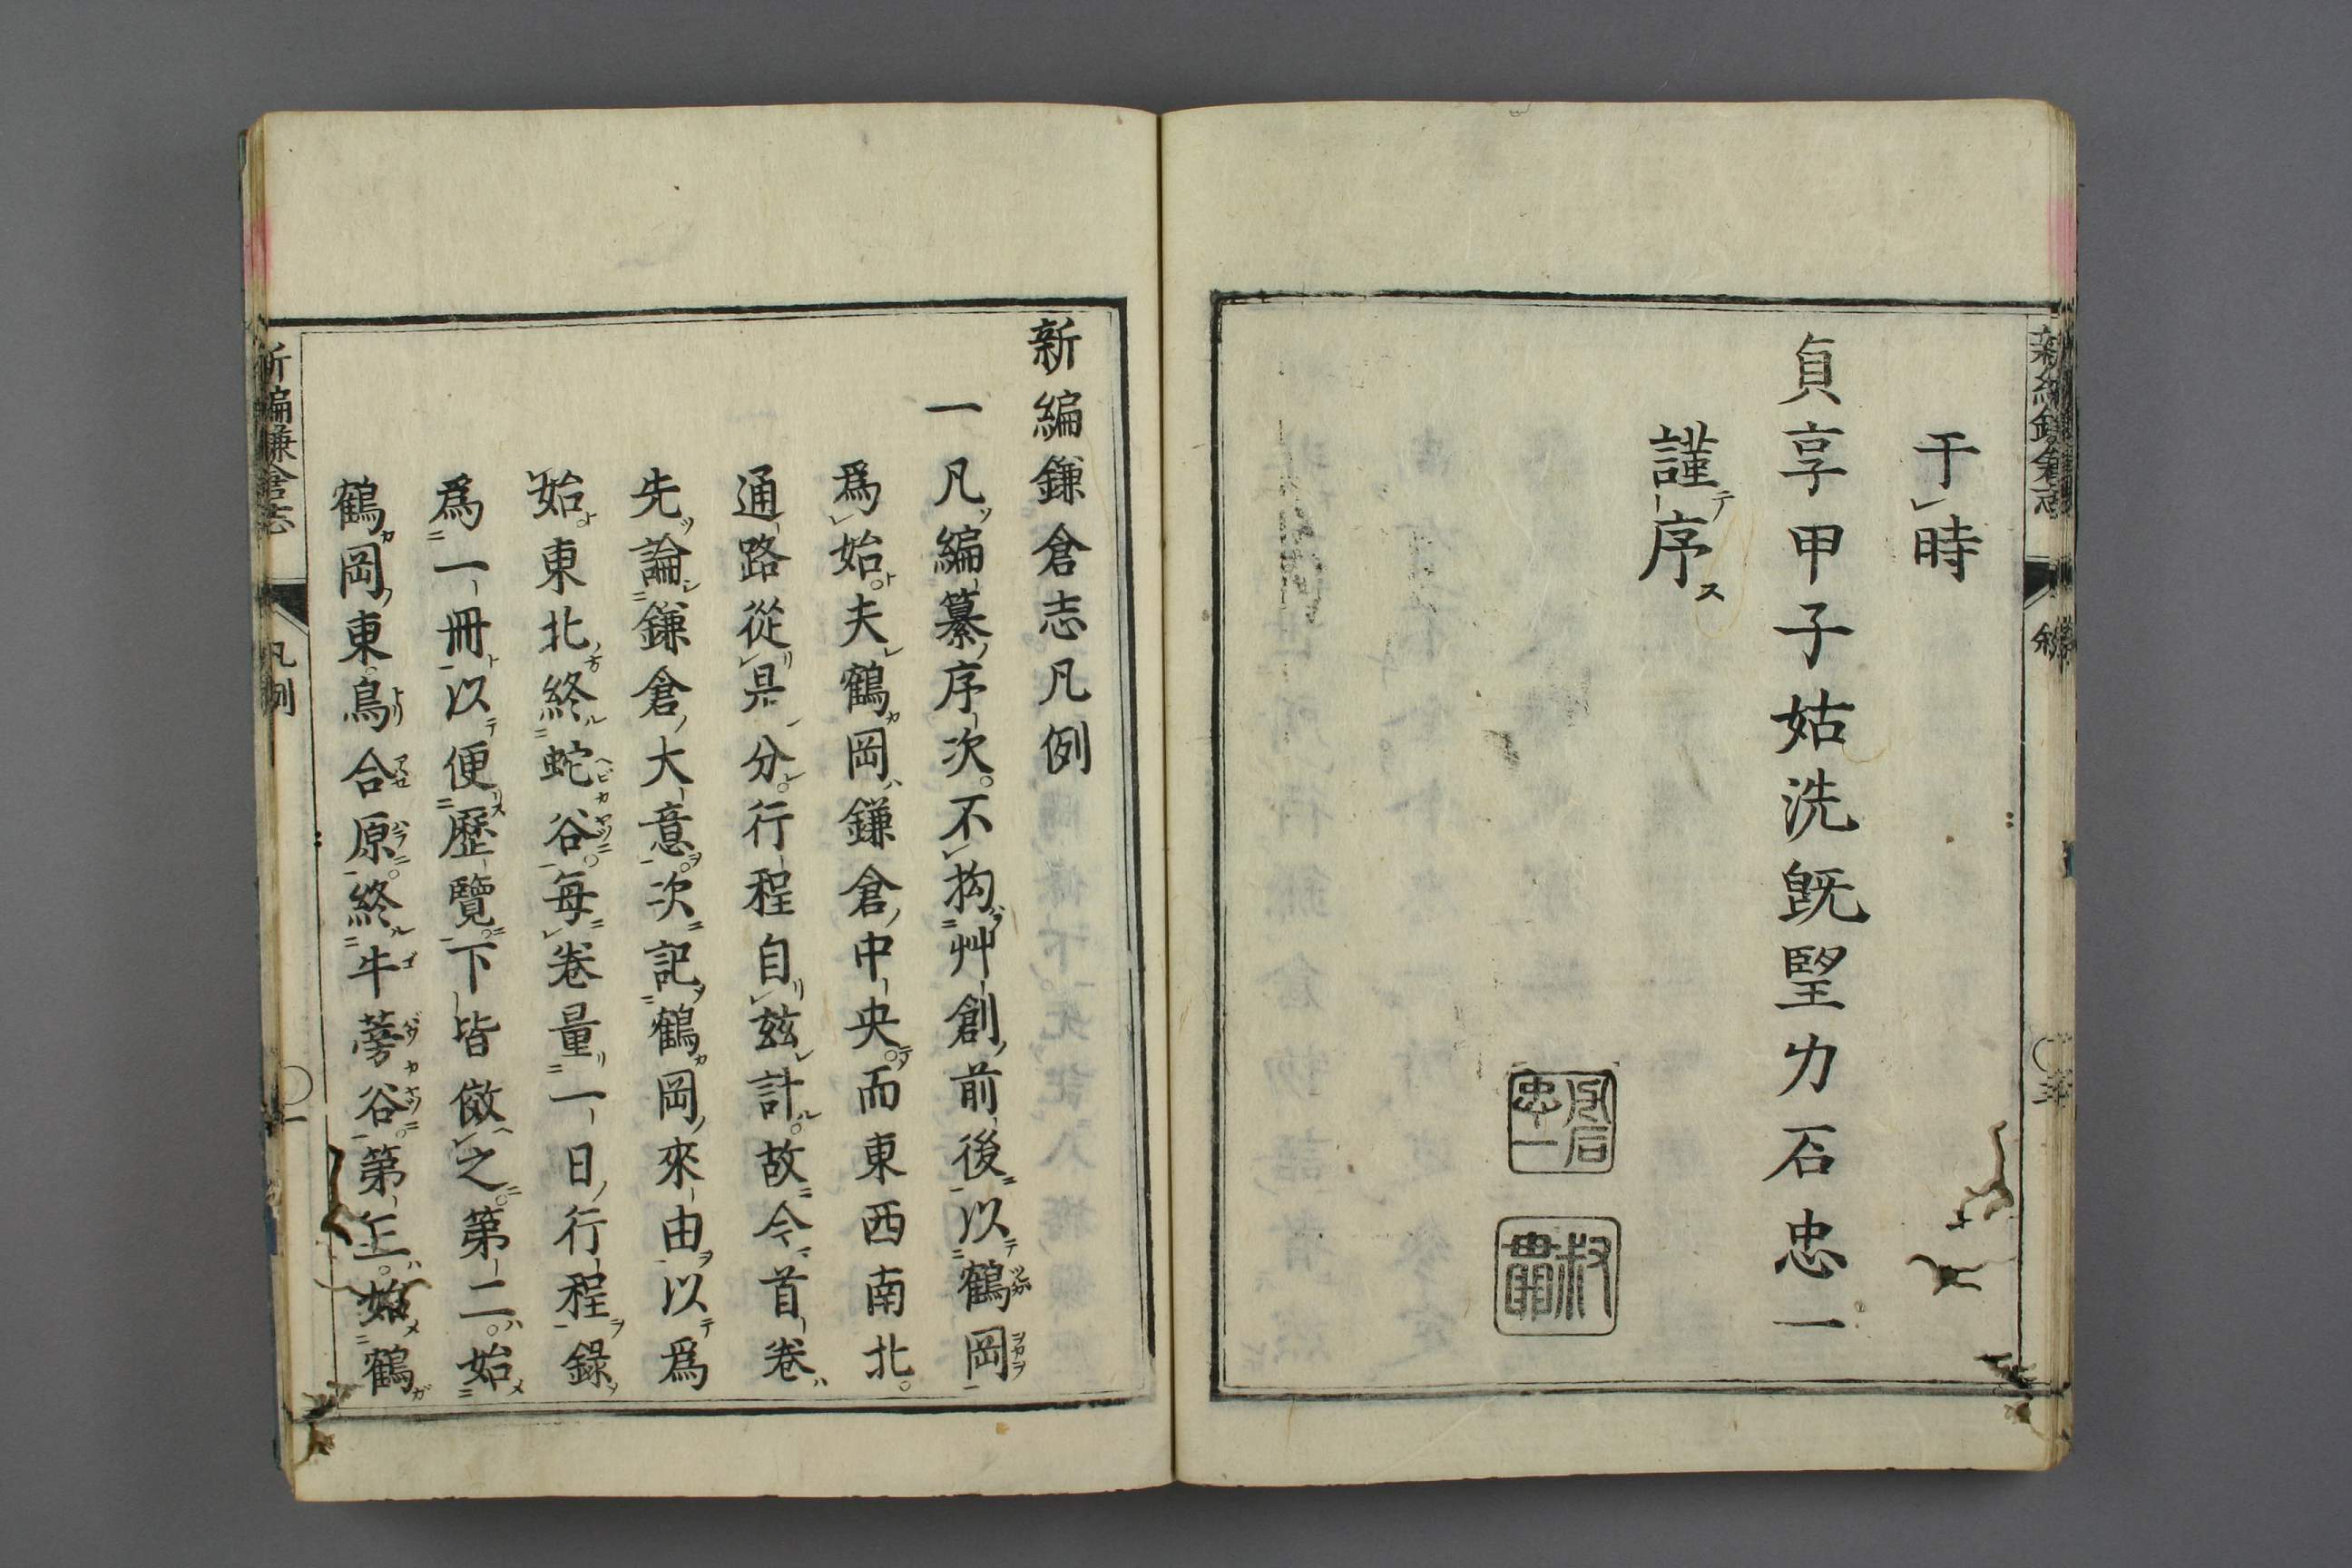 干時
貞享甲子姑洗旣朢力石忠一
謹テ序ス
新編鎌倉志凡例
一凡編纂序次。不拘艸創前後以鶴岡
爲始。夫鶴岡鎌倉中央。而東西南北。
通路從是分。行程自玆計。故今首卷
先論鎌倉大意。次記鶴岡來由以爲
始東北終蛇谷。每卷量一日行程錄
爲一冊以便歷覽。下皆倣之。第二。始
鶴岡東。鳥合原。終牛蒡谷。第三。始鶴
新編鎌倉志
凡例
一